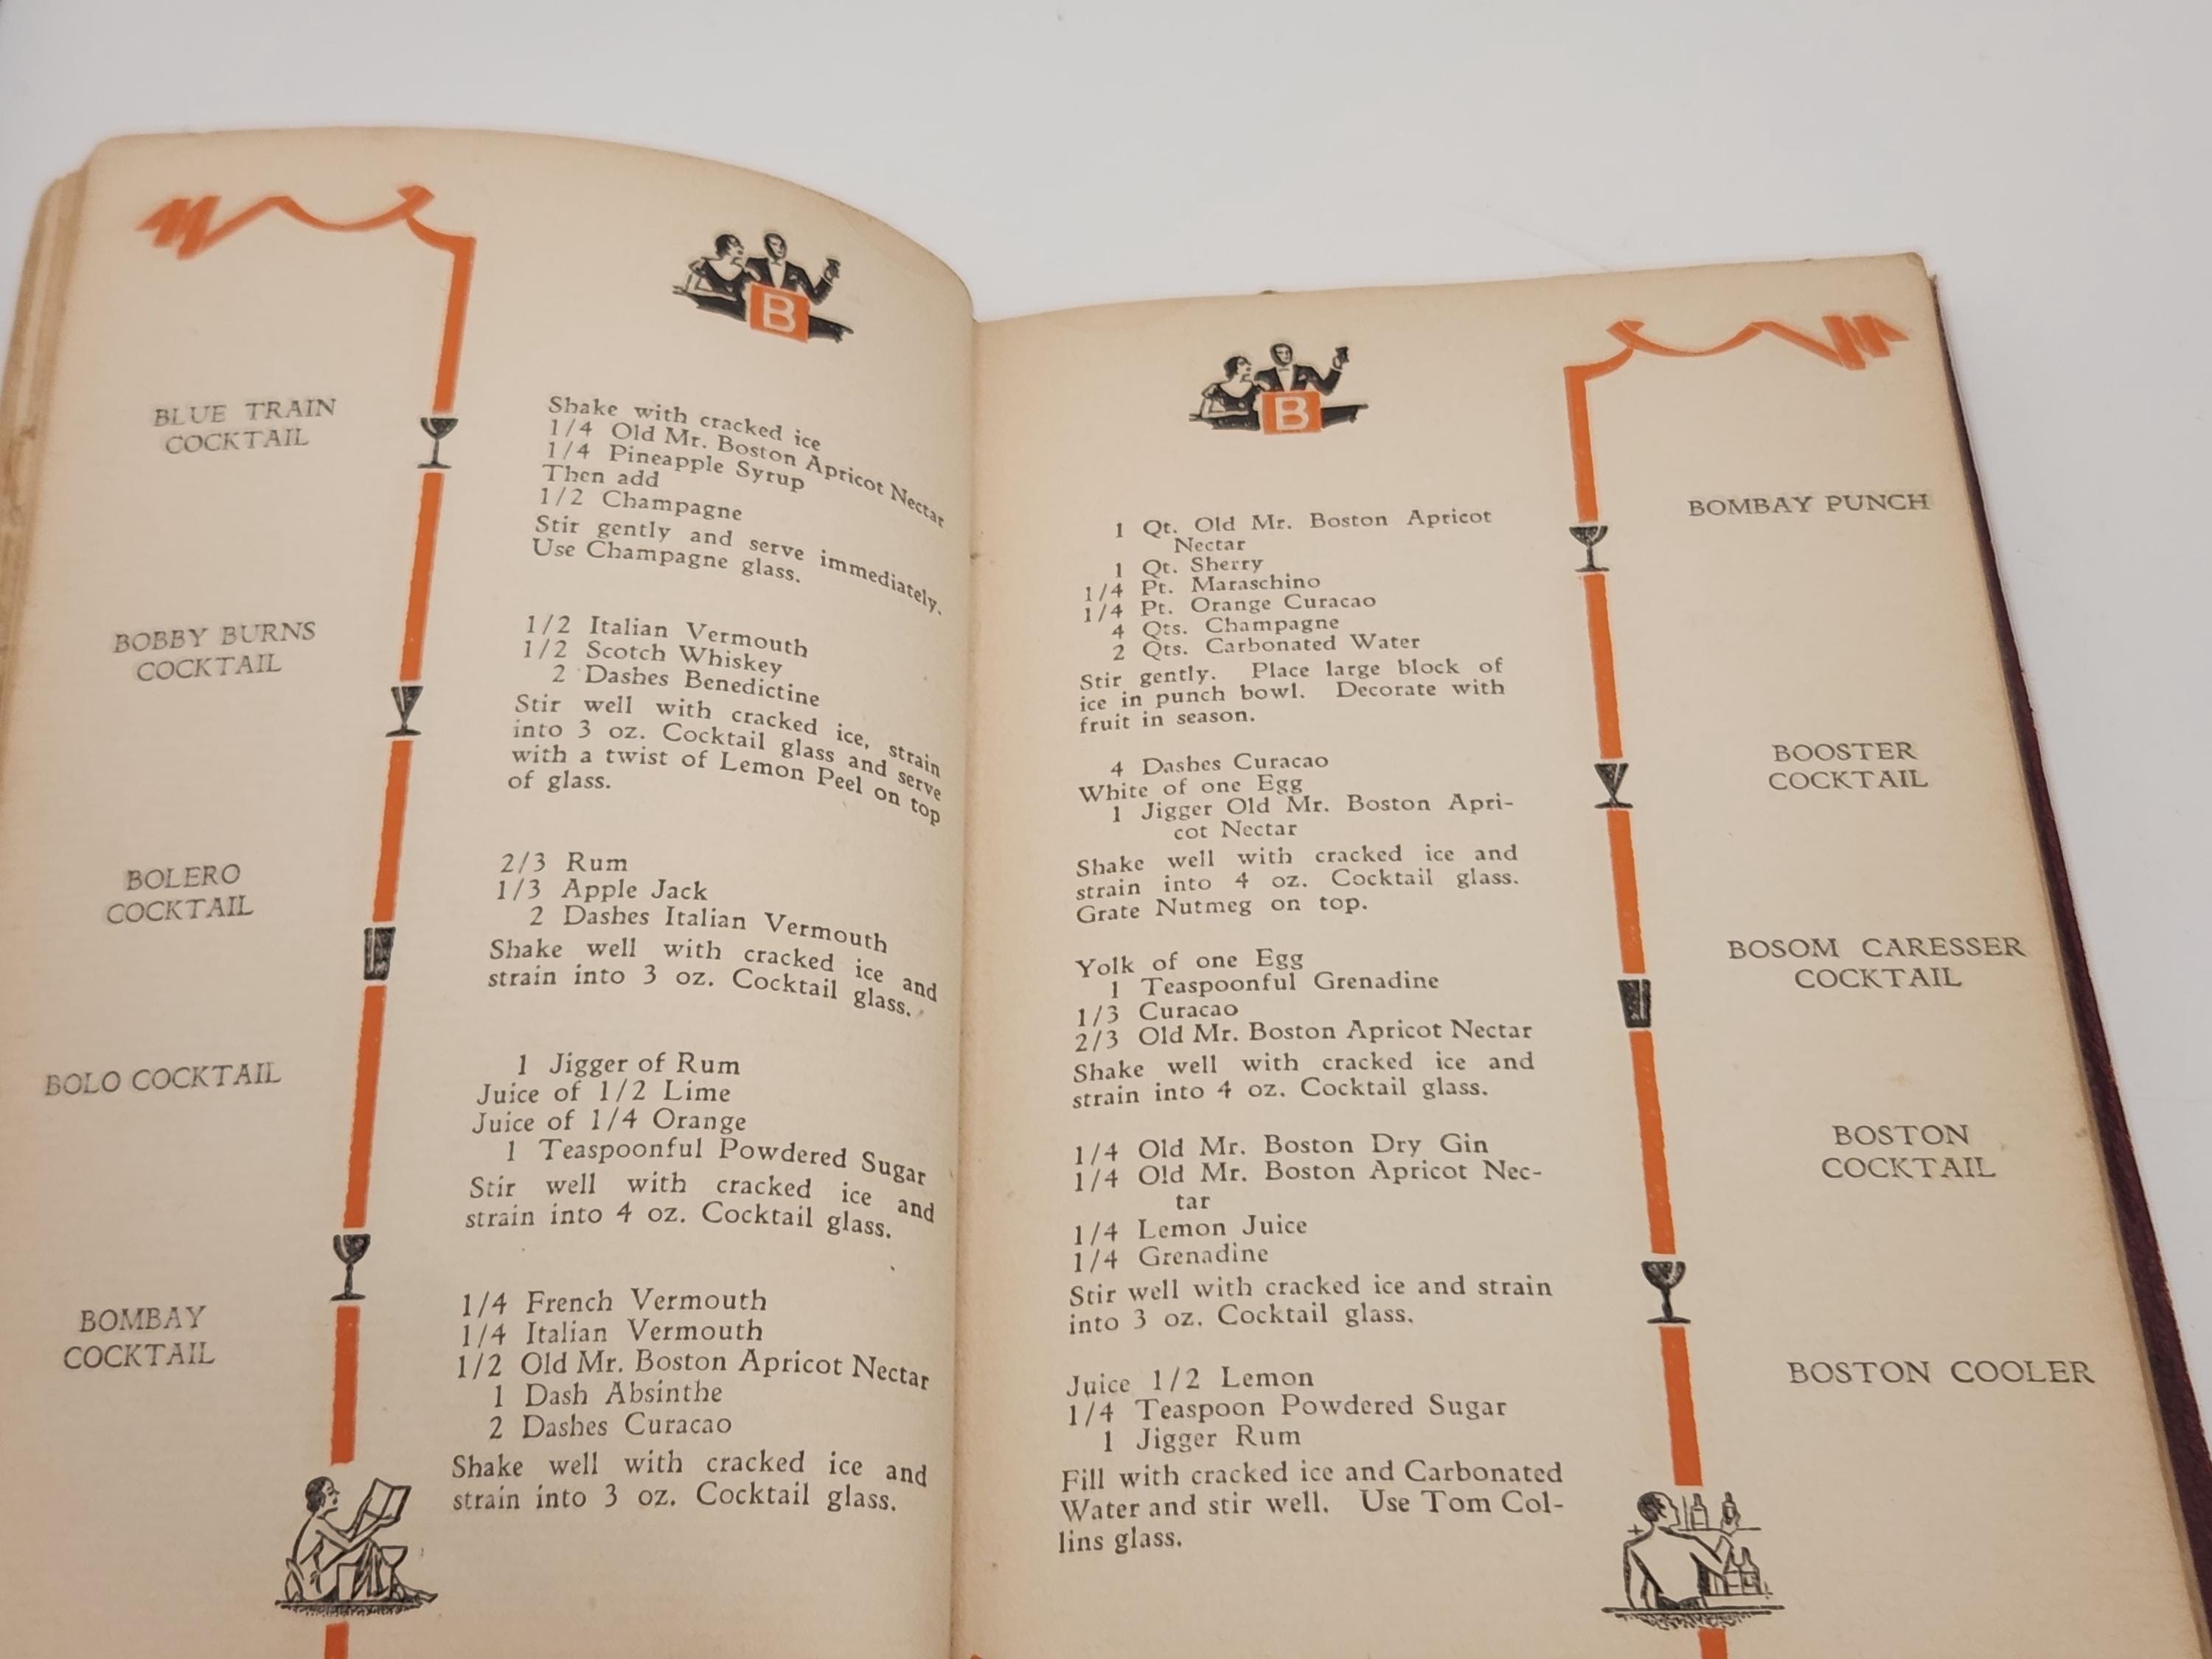 B
BLUE TRAIN
COCKTAIL
Shake with cracked ice
1/4 Old Mr. Boston Apricot Nectar
1/4 Pineapple Syrup
Then add
1/2 Champagne
Stir gently and serve immediately.
Use Champagne glass.
BOBBY BURNS
COCKTAIL
1/2 Italian Vermouth
1/2 Scotch Whiskey
2 Dashes Benedictine
Stir well with cracked ice, strain
into 3 oz. Cocktail glass and serve
with a twist of Lemon Peel on top
of glass.
BOLERO
COCKTAIL
2/3 Rum
1/3 Apple Jack
2 Dashes Italian Vermouth
Shake well with cracked ice and
strain into 3 oz. Cocktail glass.
BOLO COCKTAIL
1 Jigger of Rum
Juice of 1/2 Lime
Juice of 1/4 Orange
1 Teaspoonful Powdered Sugar
Stir well with cracked ice and
strain into 4 oz. Cocktail glass.
BOMBAY
COCKTAIL
1/4 French Vermouth
1/4 Italian Vermouth
1/2 Old Mr. Boston Apricot Nectar
1 Dash Absinthe
2 Dashes Curacao
Shake well with cracked ice and
strain into 3 oz. Cocktail glass.
B
BOMBAY PUNCH
1 Qt. Old Mr. Boston Apricot
Nectar
1 Qt. Sherry
1/4 Pt. Maraschino
1/4 Pt. Orange Curacao
4 Qts. Champagne
2 Qts. Carbonated Water
Stir gently. Place large block of
ice in punch bowl. Decorate with
fruit in season.
BOOSTER
COCKTAIL
4 Dashes Curacao
White of one Egg
1 Jigger Old Mr. Boston Apri-
cot Nectar
Shake well with cracked ice and
strain into 4 oz. Cocktail glass.
Grate Nutmeg on top.
BOSOM CARESSER
COCKTAIL
Yolk of one Egg
1 Teaspoonful Grenadine
1/3 Curacao
2/3 Old Mr. Boston Apricot Nectar
Shake well with cracked ice and
strain into 4 oz. Cocktail glass.
BOSTON
COCKTAIL
1/4 Old Mr. Boston Dry Gin
1/4 Old Mr. Boston Apricot Nec-
tar
1/4 Lemon Juice
1/4 Grenadine
Stir well with cracked ice and strain
into 3 oz. Cocktail glass.
BOSTON COOLER
Juice 1/2 Lemon
1/4 Teaspoon Powdered Sugar
1 Jigger Rum
Fill with cracked ice and Carbonated
Water and stir well. Use Tom Col-
lins glass.